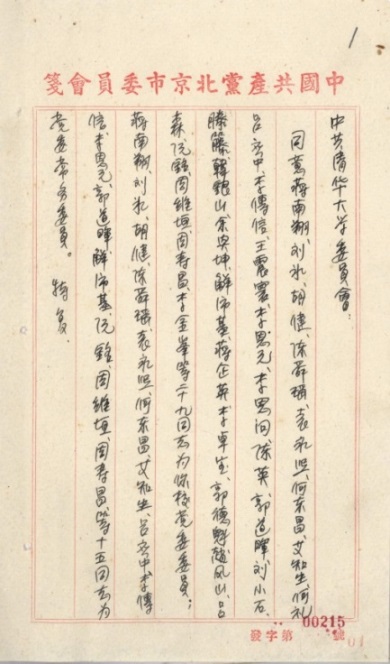 1
中國共產黨北京市委員會箋
中共清华大学委員會:
同意蔣南翔、刘冰、胡健、陈舜瑶、袁永熙、何东昌、艾知生、何礼、
吕应中、李傳信、王震寰、李恩元、李思问、陈英、郭道暉、刘小石、
滕藤、韓銀山、余興坤、解沛基、蒋企英、李卓宝、郭德魁、趙风山、吕
森、阮銘、周維垣、周寿昌、李金峯等二十九同志为你校党委委員;
蒋南翔、刘冰、胡健、陈舜瑶、袁永熙、何东昌、艾知生、吕应中、李傳
信、李恩元、郭道暉、解沛基、阮銘、周維垣、周寿昌等十五同志为
党委常务委員。 特复。
發字第00215號
01